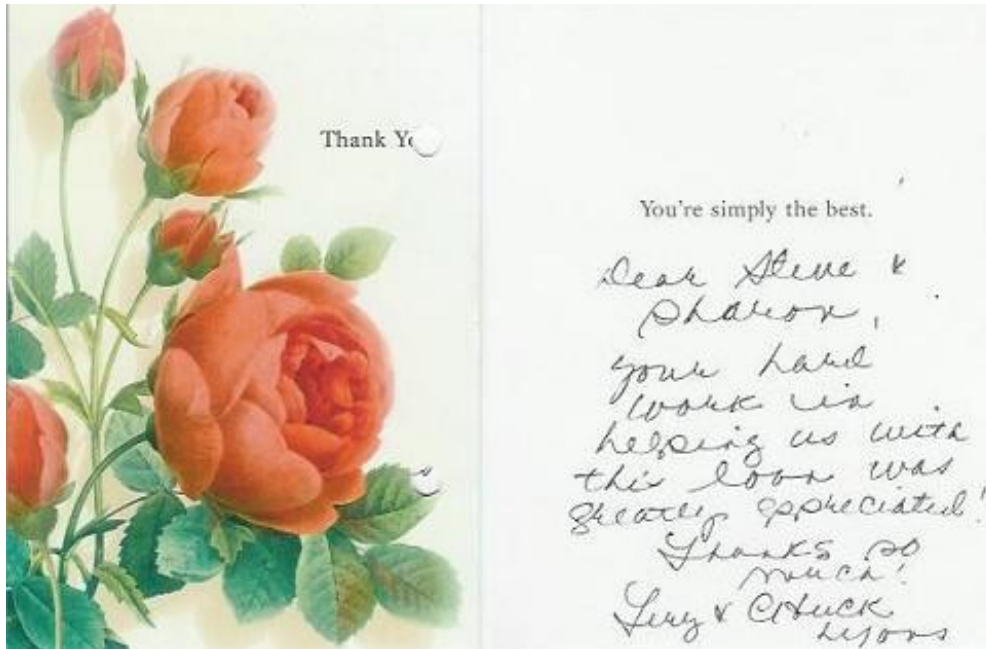 Thank Yo
You're simply the best.
Dear Steve &
Sharon,
your hard
work in
helping us with
this loan was
greatly appreciated!
Thanks so
much!
& Chuck
Lyons